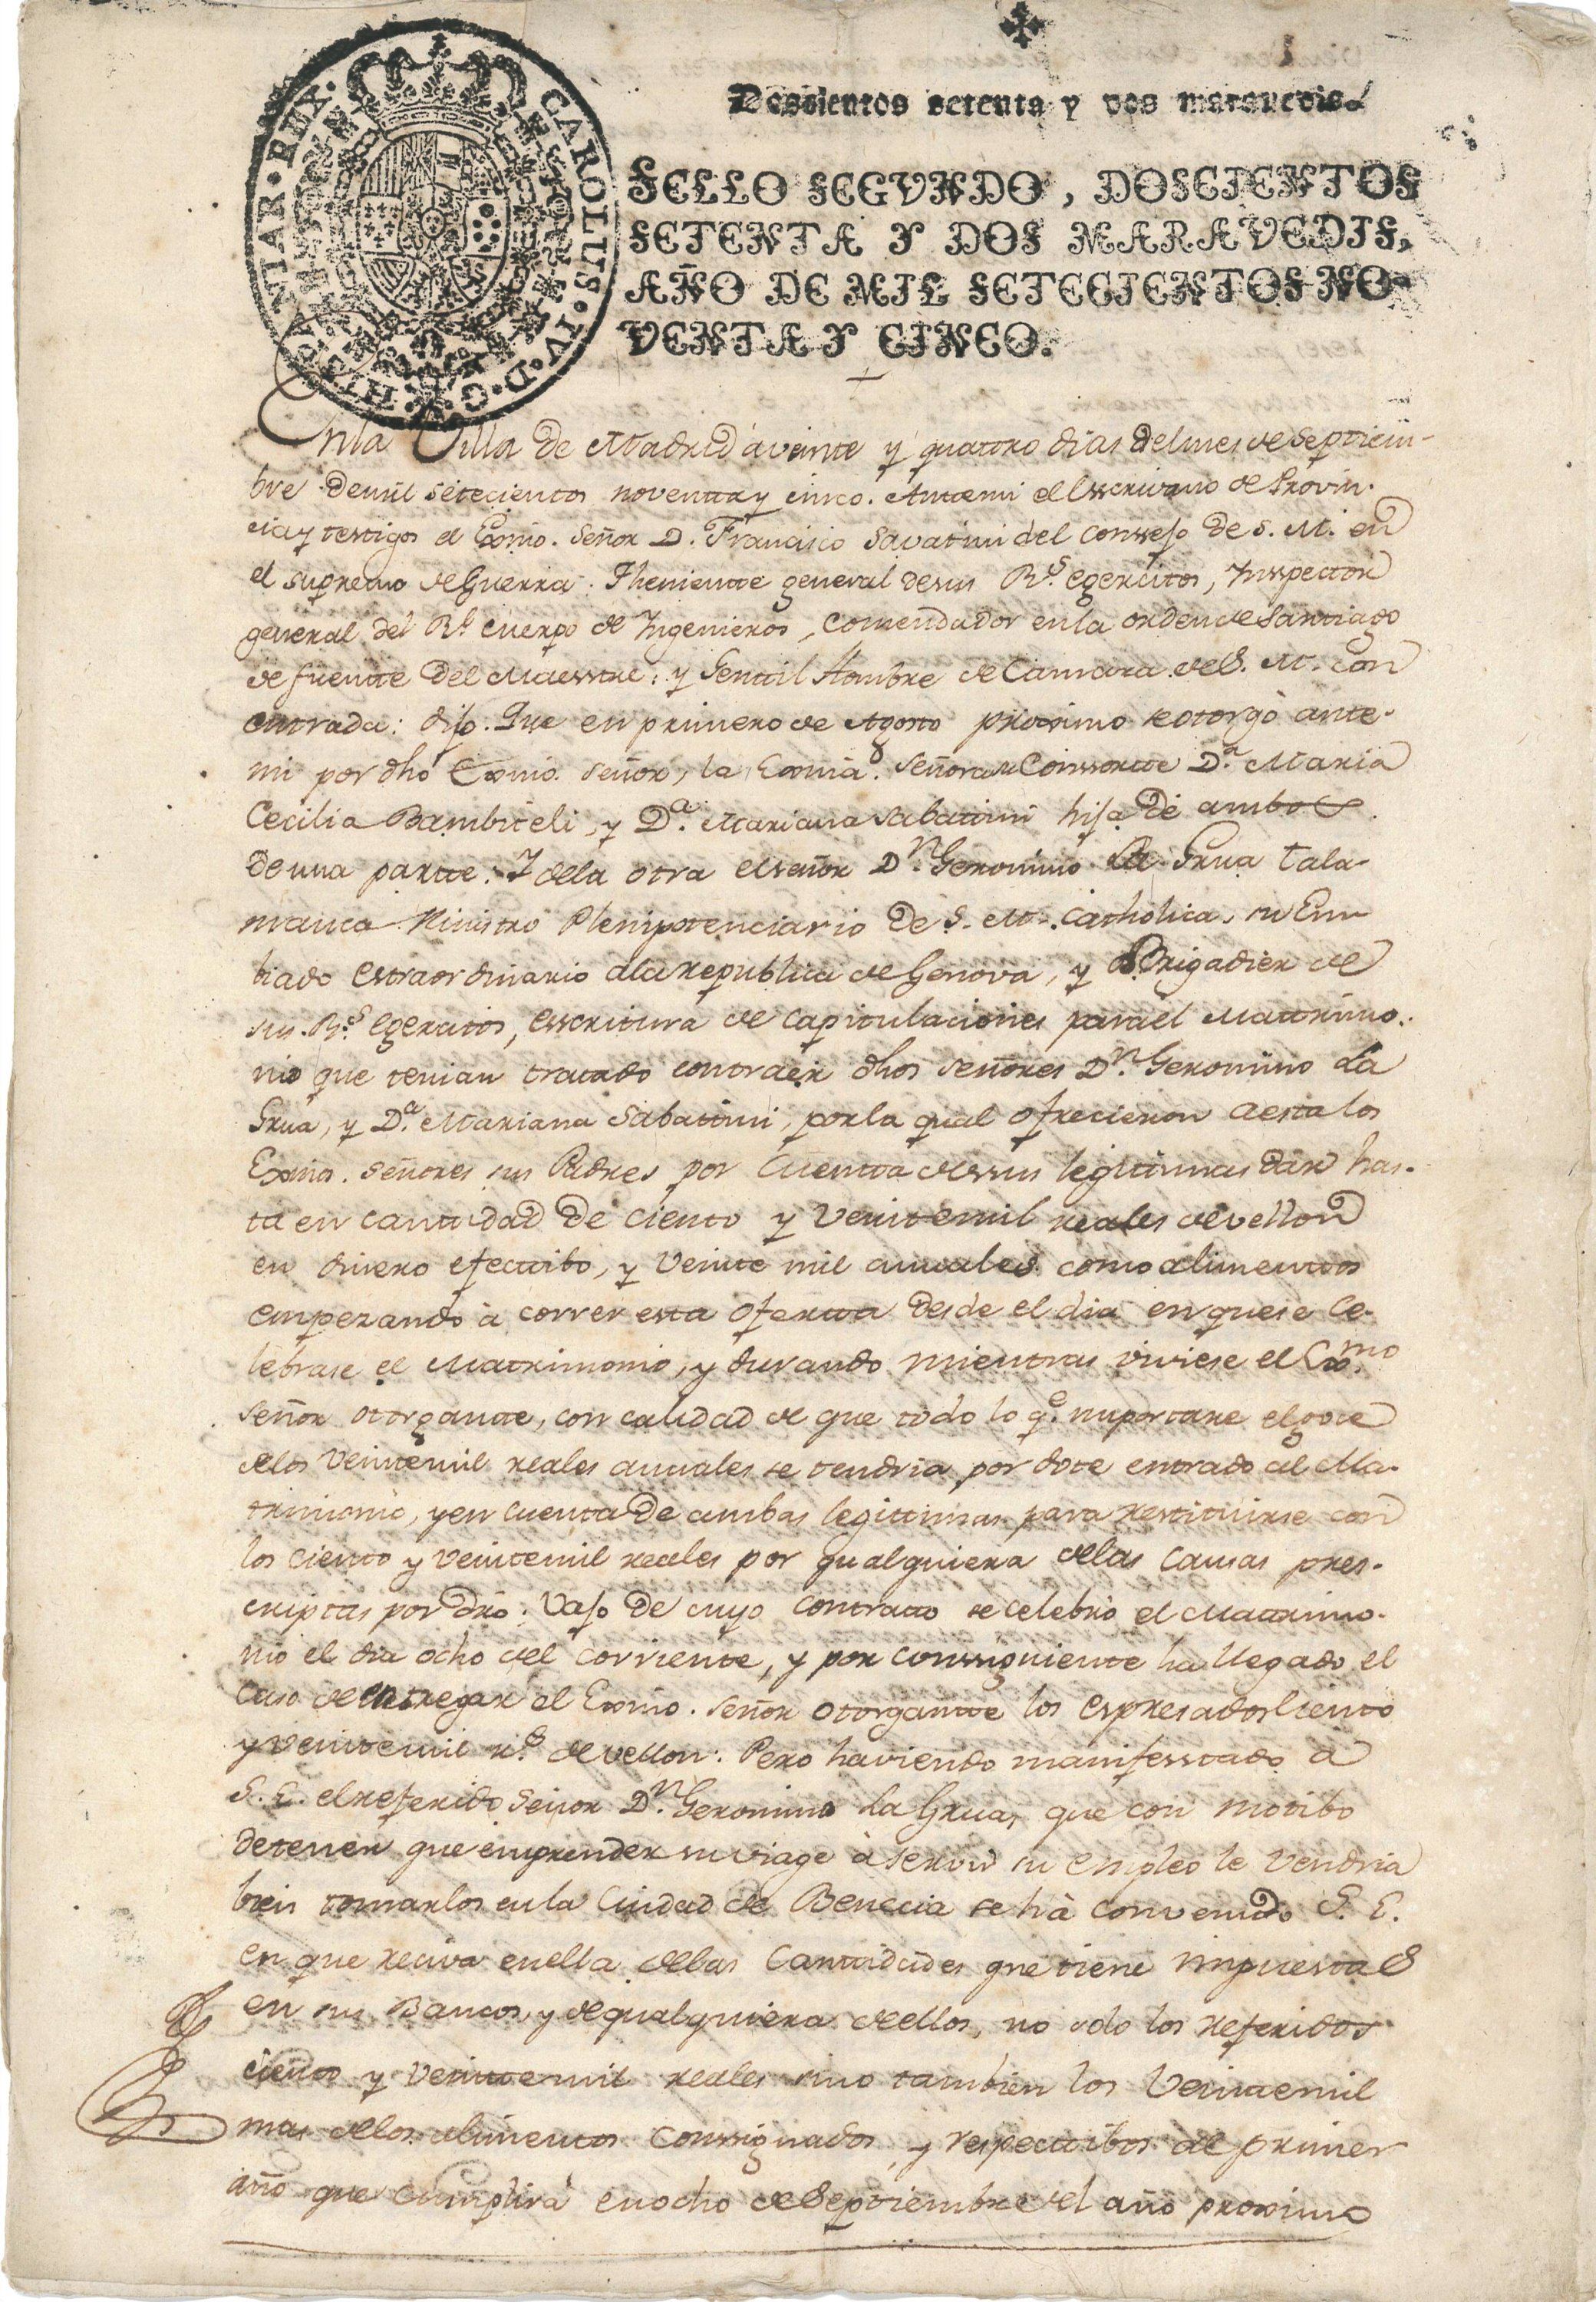 CAROLUS·IV·D·G·HISPANIAR·REX·
Doscientos setenta y dos maravedis.
SELLO SEGVNDO, DOSCIENTOS
SETENTA Y DOS MARAVEDIS,
AÑO DE MIL SETECIENTOS NO-
VENTA Y CINCO.
Enla Villa de Madrid à veinte y quattro dias del mes de Septiem-
bre de mil setecientos noventta y cinco. Ante mi el Esscrivano de Provin-
cia y testigos el Exmo. Señor D. Francisco Savatini del Conssejo de S. M. en
el supremo de Guerra. Theniente general de sus Rs. egercitos, Ynspector
general del Rl. cuerpo de Yngenieros, Comendador en la orden de Santiago
de fuente del Maesstre, y Genttil Hombre de Camara de S. M. con
entrada: dijo. Que en primero de Agosto proximo se otorgò ante-
mi por dho Exmo. señor, la Exma. Señora su Conssorte Da. Maria
Cecilia Bambiteli, y Da. Mariana Sabattini hija de ambos
de una partte: Y dela otra el señor Dn. Geronimo La Grua Tala-
manca Ministro Plenipotenciario de S. M. Catholica, su Em-
biado estraordinario ala republica de Genova, y Brigadier de
sus Rs. egercitos, esscritura de capitulaciones para el Mattrimo-
nio que tenian tratado contraer dhos señores Dn. Geronimo La
Grua, y Da. Mariana Sabattini, por la qual ofrecieron a esta los
Exmos. señores sus Padres por cuentta de sus legitimas dar has-
ta en canttidad de ciento y Veintemil reales de vellon
en dinero efecttibo, y Veinte mil anuales como alimenttos
empezando à correr esta ofertta desde el dia en que se ce-
lebrase el Matrimonio, y durando mientras viviese el Exmo.
señor otorgante, con calidad de que todo lo qe. importare el goce
delos Veintemil reales anuales se tendria por dote entrado al Ma-
trimonio, y en cuenta de ambas legittimas para restituirse con
los ciento y Veintemil reales por qualquiera delas causas pres-
criptas por dro: Vajo de cuyo contratto se celebrò el Mattrimo-
nio el dia ocho del corriente, y por conssiguiente ha llegado el
caso de entregar el Exmo. señor otorgantte los espresados ciento
y Veintemil rs. de vellon: Pero haviendo manifesstado à
S. E. el referido Señor Dn. Geronimo La Grua, que con motibo
de tener que emprender su viage à servir su empleo le vendria
bien tomarlos en la Ciudad de Benecia se hà convenido S. E.
en que reciva en ella delas Canttidades que tiene impuestas
en sus Bancos, y de qualquiera de ellos, no solo los referidos
ciento y Veintemil reales sino tambien los Veintemil
mas delos alimentos conssignados, y respecttibos al primer
año que cumplirà en ocho de Septiembre del año proximo